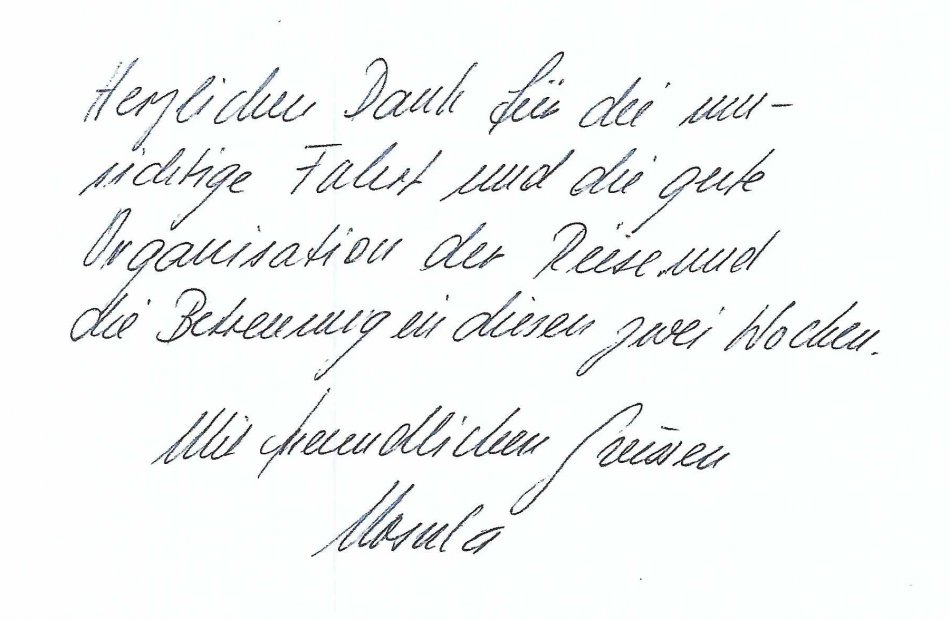 Herzlichen Dank für die um-
sichtige Fahrt und die gute
Organisation der Reise und
die Betreuung in diesen zwei Wochen.
Mit freundlichen Grüssen
Ursula